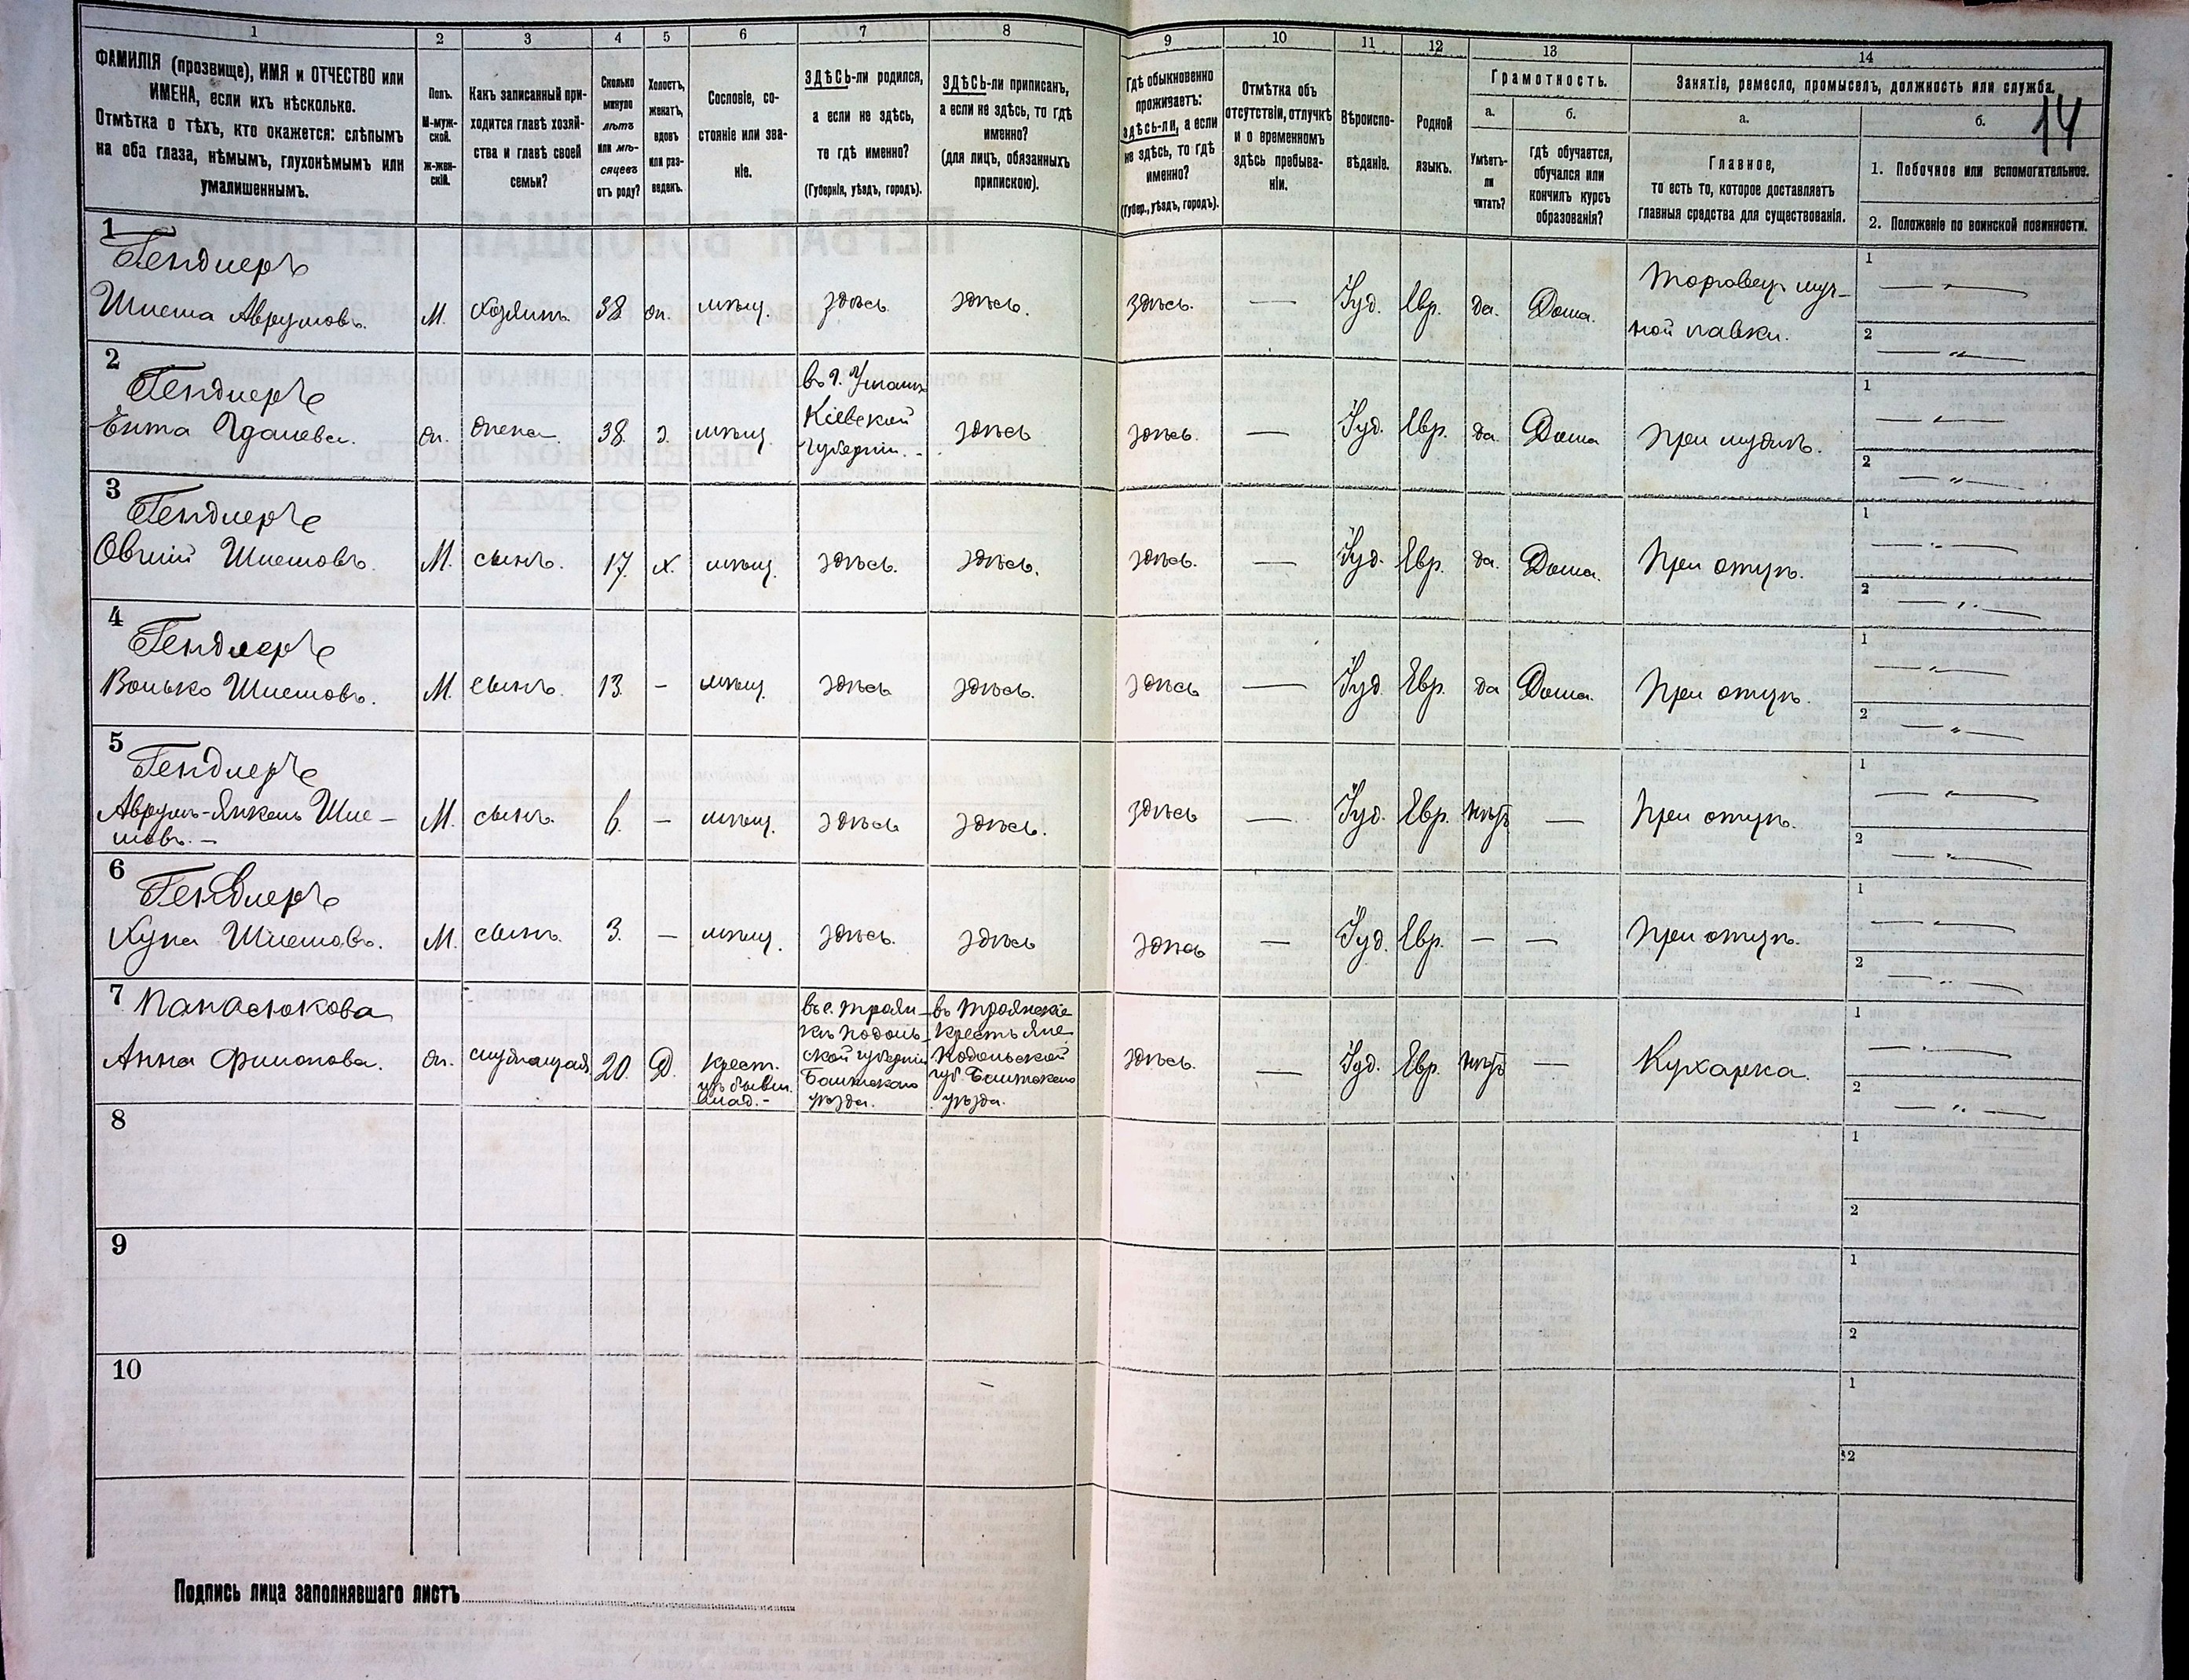 1 2 3 4 5 6 7 8 9 10 11 12 13 14
ФАМИЛІЯ (прозвище), ИМЯ и ОТЧЕСТВО или
ИМЕНА, если ихъ нѣсколько.
Отмѣтка о тѣхъ, кто окажется: слѣпымъ
на оба глаза, нѣмымъ, глухонѣмымъ или
умалишеннымъ.
Полъ.
М-муж-
ской.
ж-жен-
скій.
Какъ записанный при-
ходится главѣ хозяй-
ства и главѣ своей
семьи?
Сколько
минуло
лѣтъ
или мѣ-
сяцевъ
отъ роду?
Холостъ,
женатъ,
вдовъ
или раз-
веденъ.
Сословіе, со-
стояніе или зва-
ніе.
ЗДѢСЬ-ли родился,
а если не здѣсь,
то гдѣ именно?
(Губернія, уѣздъ, городъ).
ЗДѢСЬ-ли приписанъ,
а если не здѣсь, то гдѣ
именно?
(для лицъ, обязанныхъ
припискою).
Гдѣ обыкновенно
проживаетъ:
здѣсь-ли, а если
не здѣсь, то гдѣ
именно?
(Губер., уѣздъ, городъ).
Отмѣтка объ
отсутствіи, отлучкѣ
и о временномъ
здѣсь пребыва-
ніи.
Вѣроиспо-
вѣданіе.
Родной
языкъ.
Грамотность.
а.
Умѣетъ-
ли
читать?
б.
гдѣ обучается,
обучался или
кончилъ курсъ
образованія?
Занятіе, ремесло, промыселъ, должность или служба.
14
а.
Главное,
то есть то, которое доставляетъ
главныя средства для существованія.
б.
1. Побочное или вспомогательное.
2. Положеніе по воинской повинности.
1
Гендлеръ
Шлема Аврумовъ. М. хозяинъ. 38. жн. мѣщ. здѣсь здѣсь. здѣсь. — Іуд. Евр. да. Дома.
Торговец муч-
ной лавки.
1
2
2
Гендлеръ
Ента Гдалева. жн. жена. 38. з. мѣщ.
въ г. Умани
Кіевской
Губерніи. -
здѣсь здѣсь. — Іуд. Евр. да. Дома При мужѣ.
1
2
3
Гендлеръ
Овшій Шлемовъ. М. сынъ. 17. х. мѣщ. здѣсь. здѣсь. здѣсь. — Іуд. Евр. да. Дома. При отцѣ.
1
2
4
Гендлеръ
Волько Шлемовъ. М. сынъ. 13. - мѣщ. здѣсь здѣсь. здѣсь — Іуд. Евр. да Дома. При отцѣ.
1
2
5
Гендлеръ
Аврумъ-Янкель Шле-
мовъ. - М. сынъ. 6. — мѣщ. здѣсь здѣсь. здѣсь — Іуд. Евр. нѣтъ — При отцѣ.
1
2
6
Гендлеръ
Хуна Шлемовъ. М. сынъ. 3. — мѣщ. здѣсь. здѣсь здѣсь — Іуд. Евр. — — При отцѣ.
1
2
7 Панасюкова
Анна Филопова. жн. служащая 20. Д.
крест.
изъ бывш.
влад. -
въ с. Троян-
кѣ Подоль-
ской губерніи
Балтскаго
уѣзда.
Подольской
губ. Балтскаго
уѣзда.
здѣсь. — Іуд. Евр. нѣтъ — Кухарка.
1
2
8
1
2
9
1
2
10
1
2
Подпись лица заполнявшаго листъ